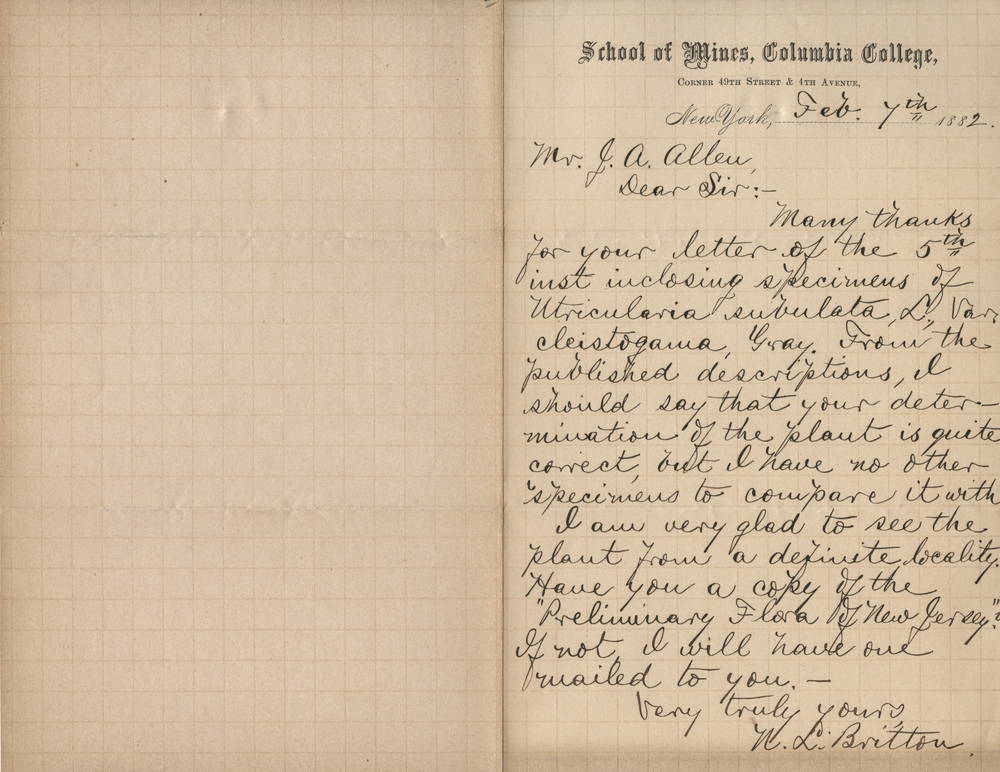 School of Mines, Columbia College,
Corner 49th Street & 4th Avenue,
New York, Feb. 7th 1882.
Mr. J. A. Allen,
Dear Sir:—
Many thanks
for your letter of the 5th
inst inclosing specimens of
Utricularia subulata, L., Var.
cleistogama, Gray. From the
published descriptions, I
should say that your deter-
mination of the plant is quite
correct, but I have no other
specimens to compare it with
I am very glad to see the
plant from a definite locality.
Have you a copy of the
"Preliminary Flora of New Jersey"?
If not, I will have one
mailed to you. —
Very truly yours,
N. L. Britton.